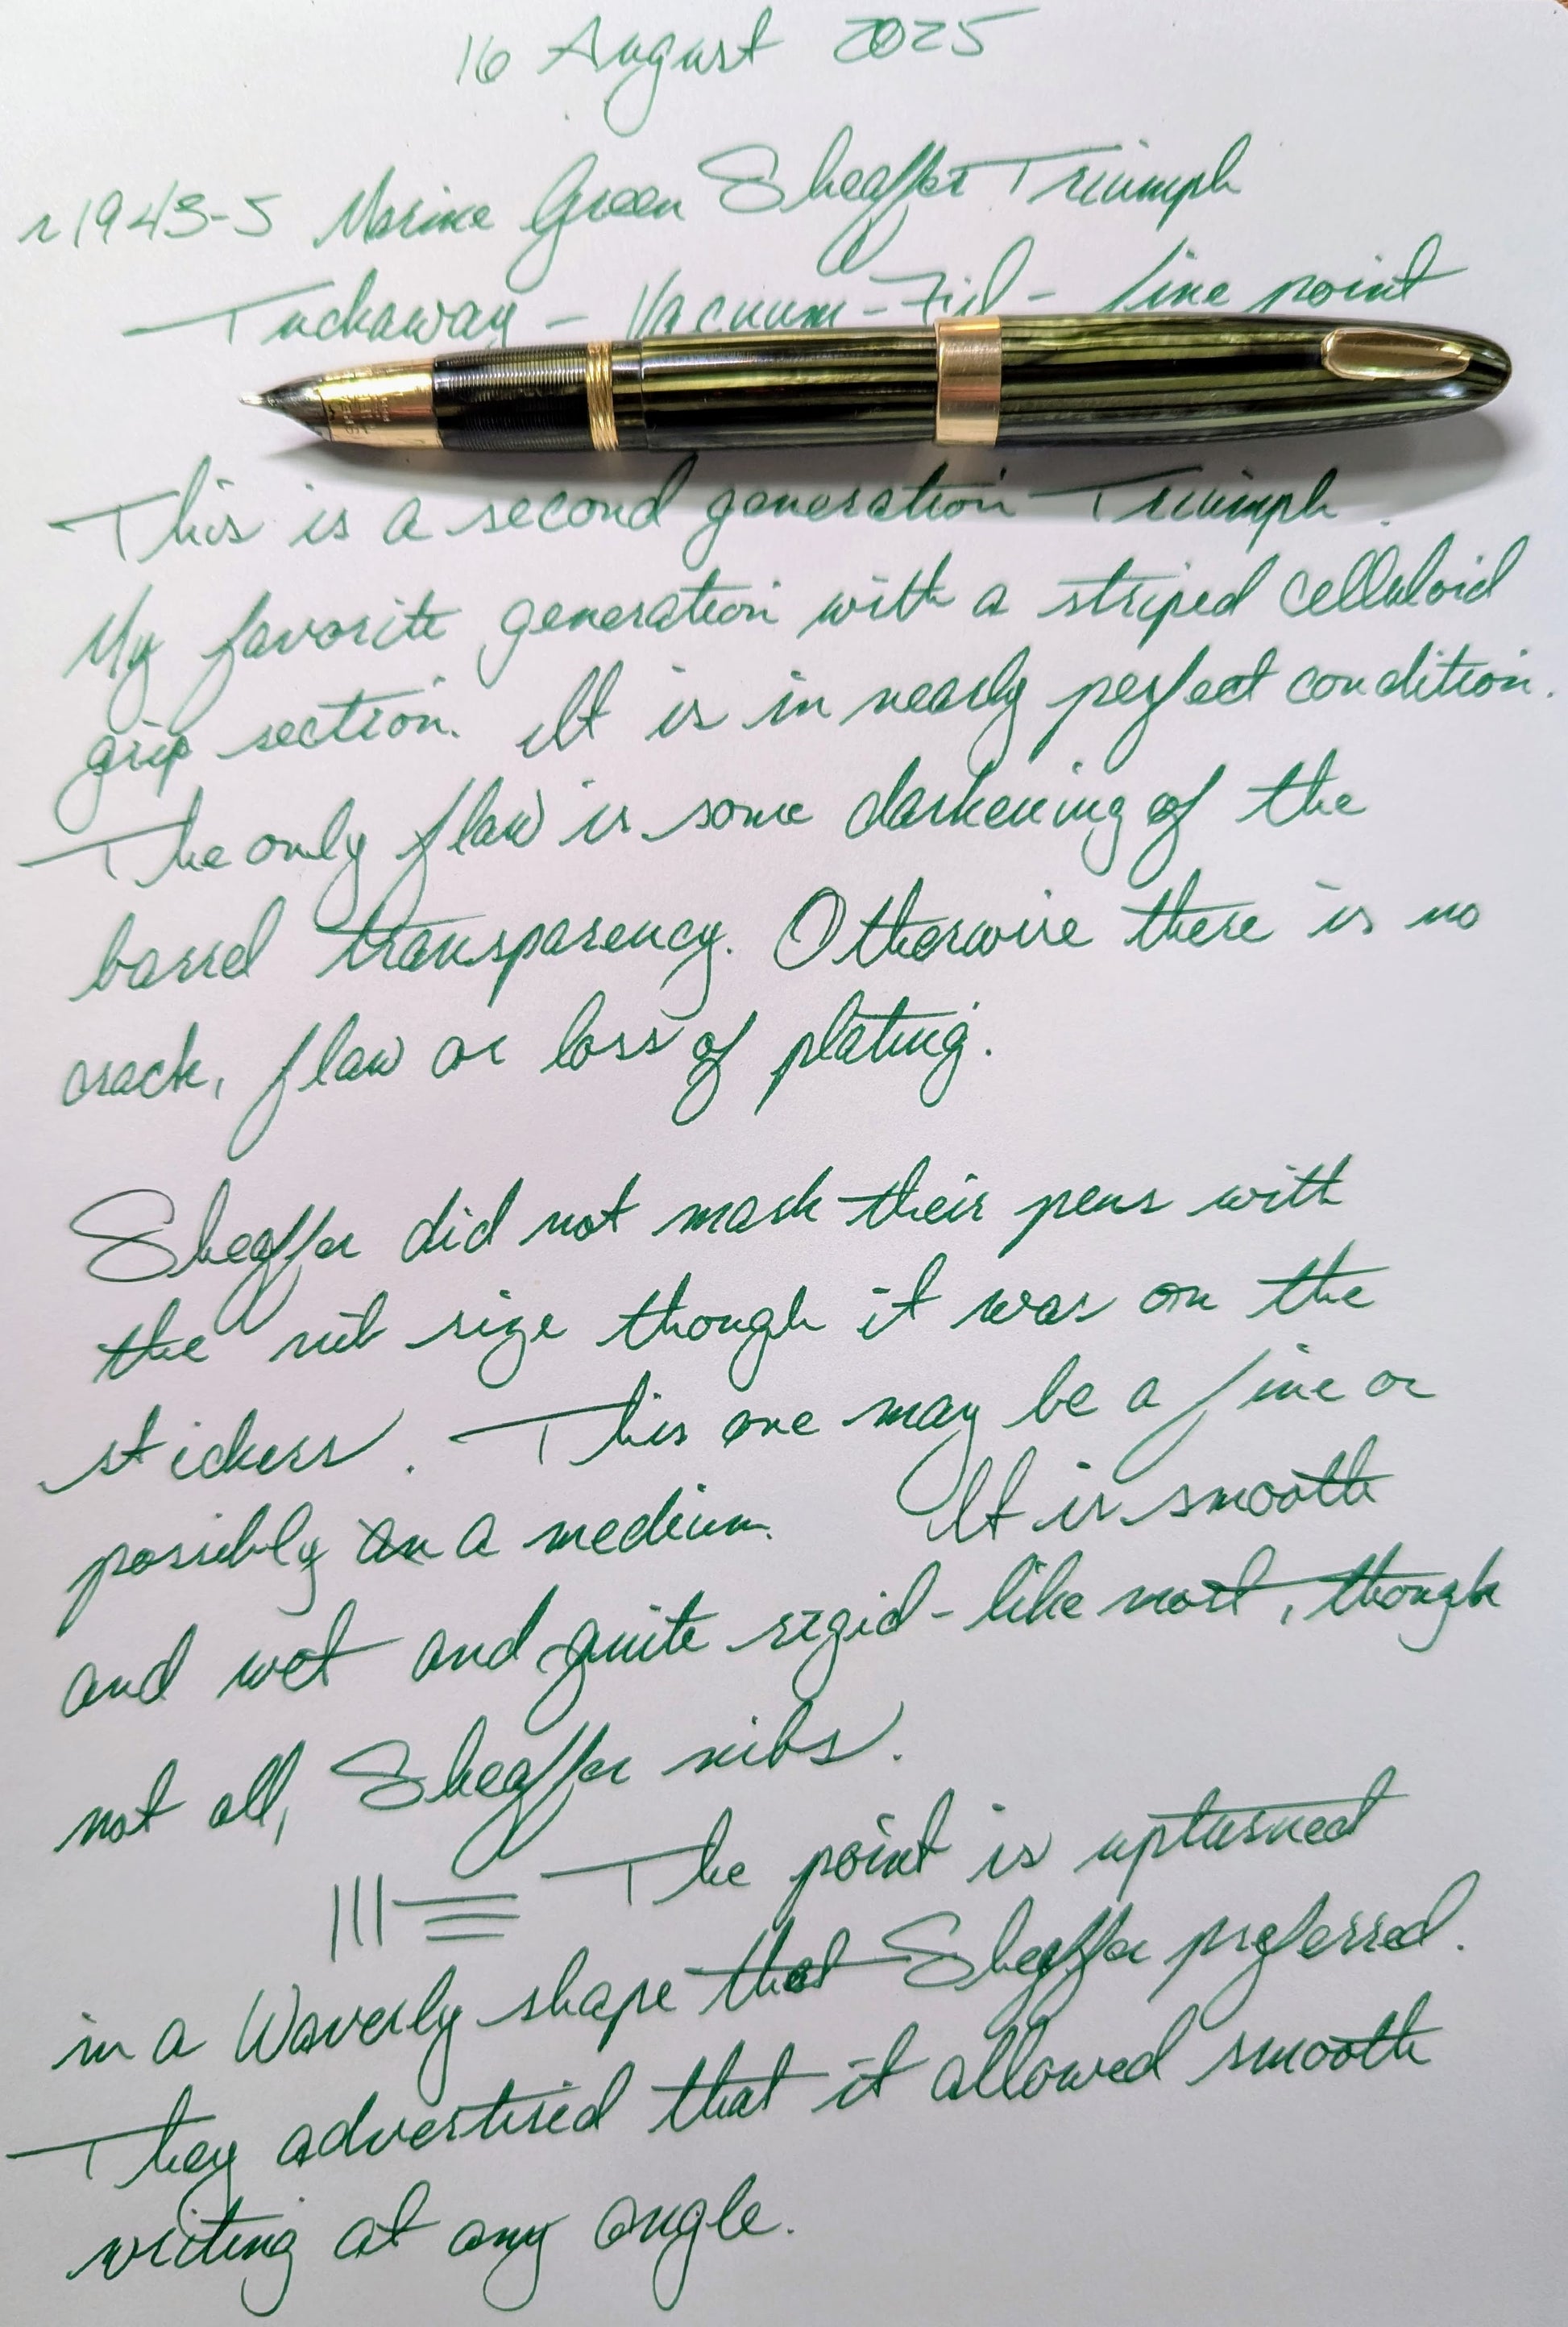 16 August 2025
~1943-5 Marine Green Sheaffer Triumph
Tuckaway - Vacuum-Fil - fine point
This is a second generation Triumph.
My favorite generation with a striped celluloid
grip section. It is in nearly perfect condition.
The only flaw is some darkening of the
barrel transparency. Otherwise there is no
crack, flaw or loss of plating.
Sheaffer did not mark their pens with
the nib size though it was on the
stickers. This one may be a fine or
possibly a medium. It is smooth
and wet and quite rigid - like most, though
not all, Sheaffer nibs.
The point is upturned
in a Waverly shape that Sheaffer preferred.
They advertised that it allowed smooth
writing at any angle.